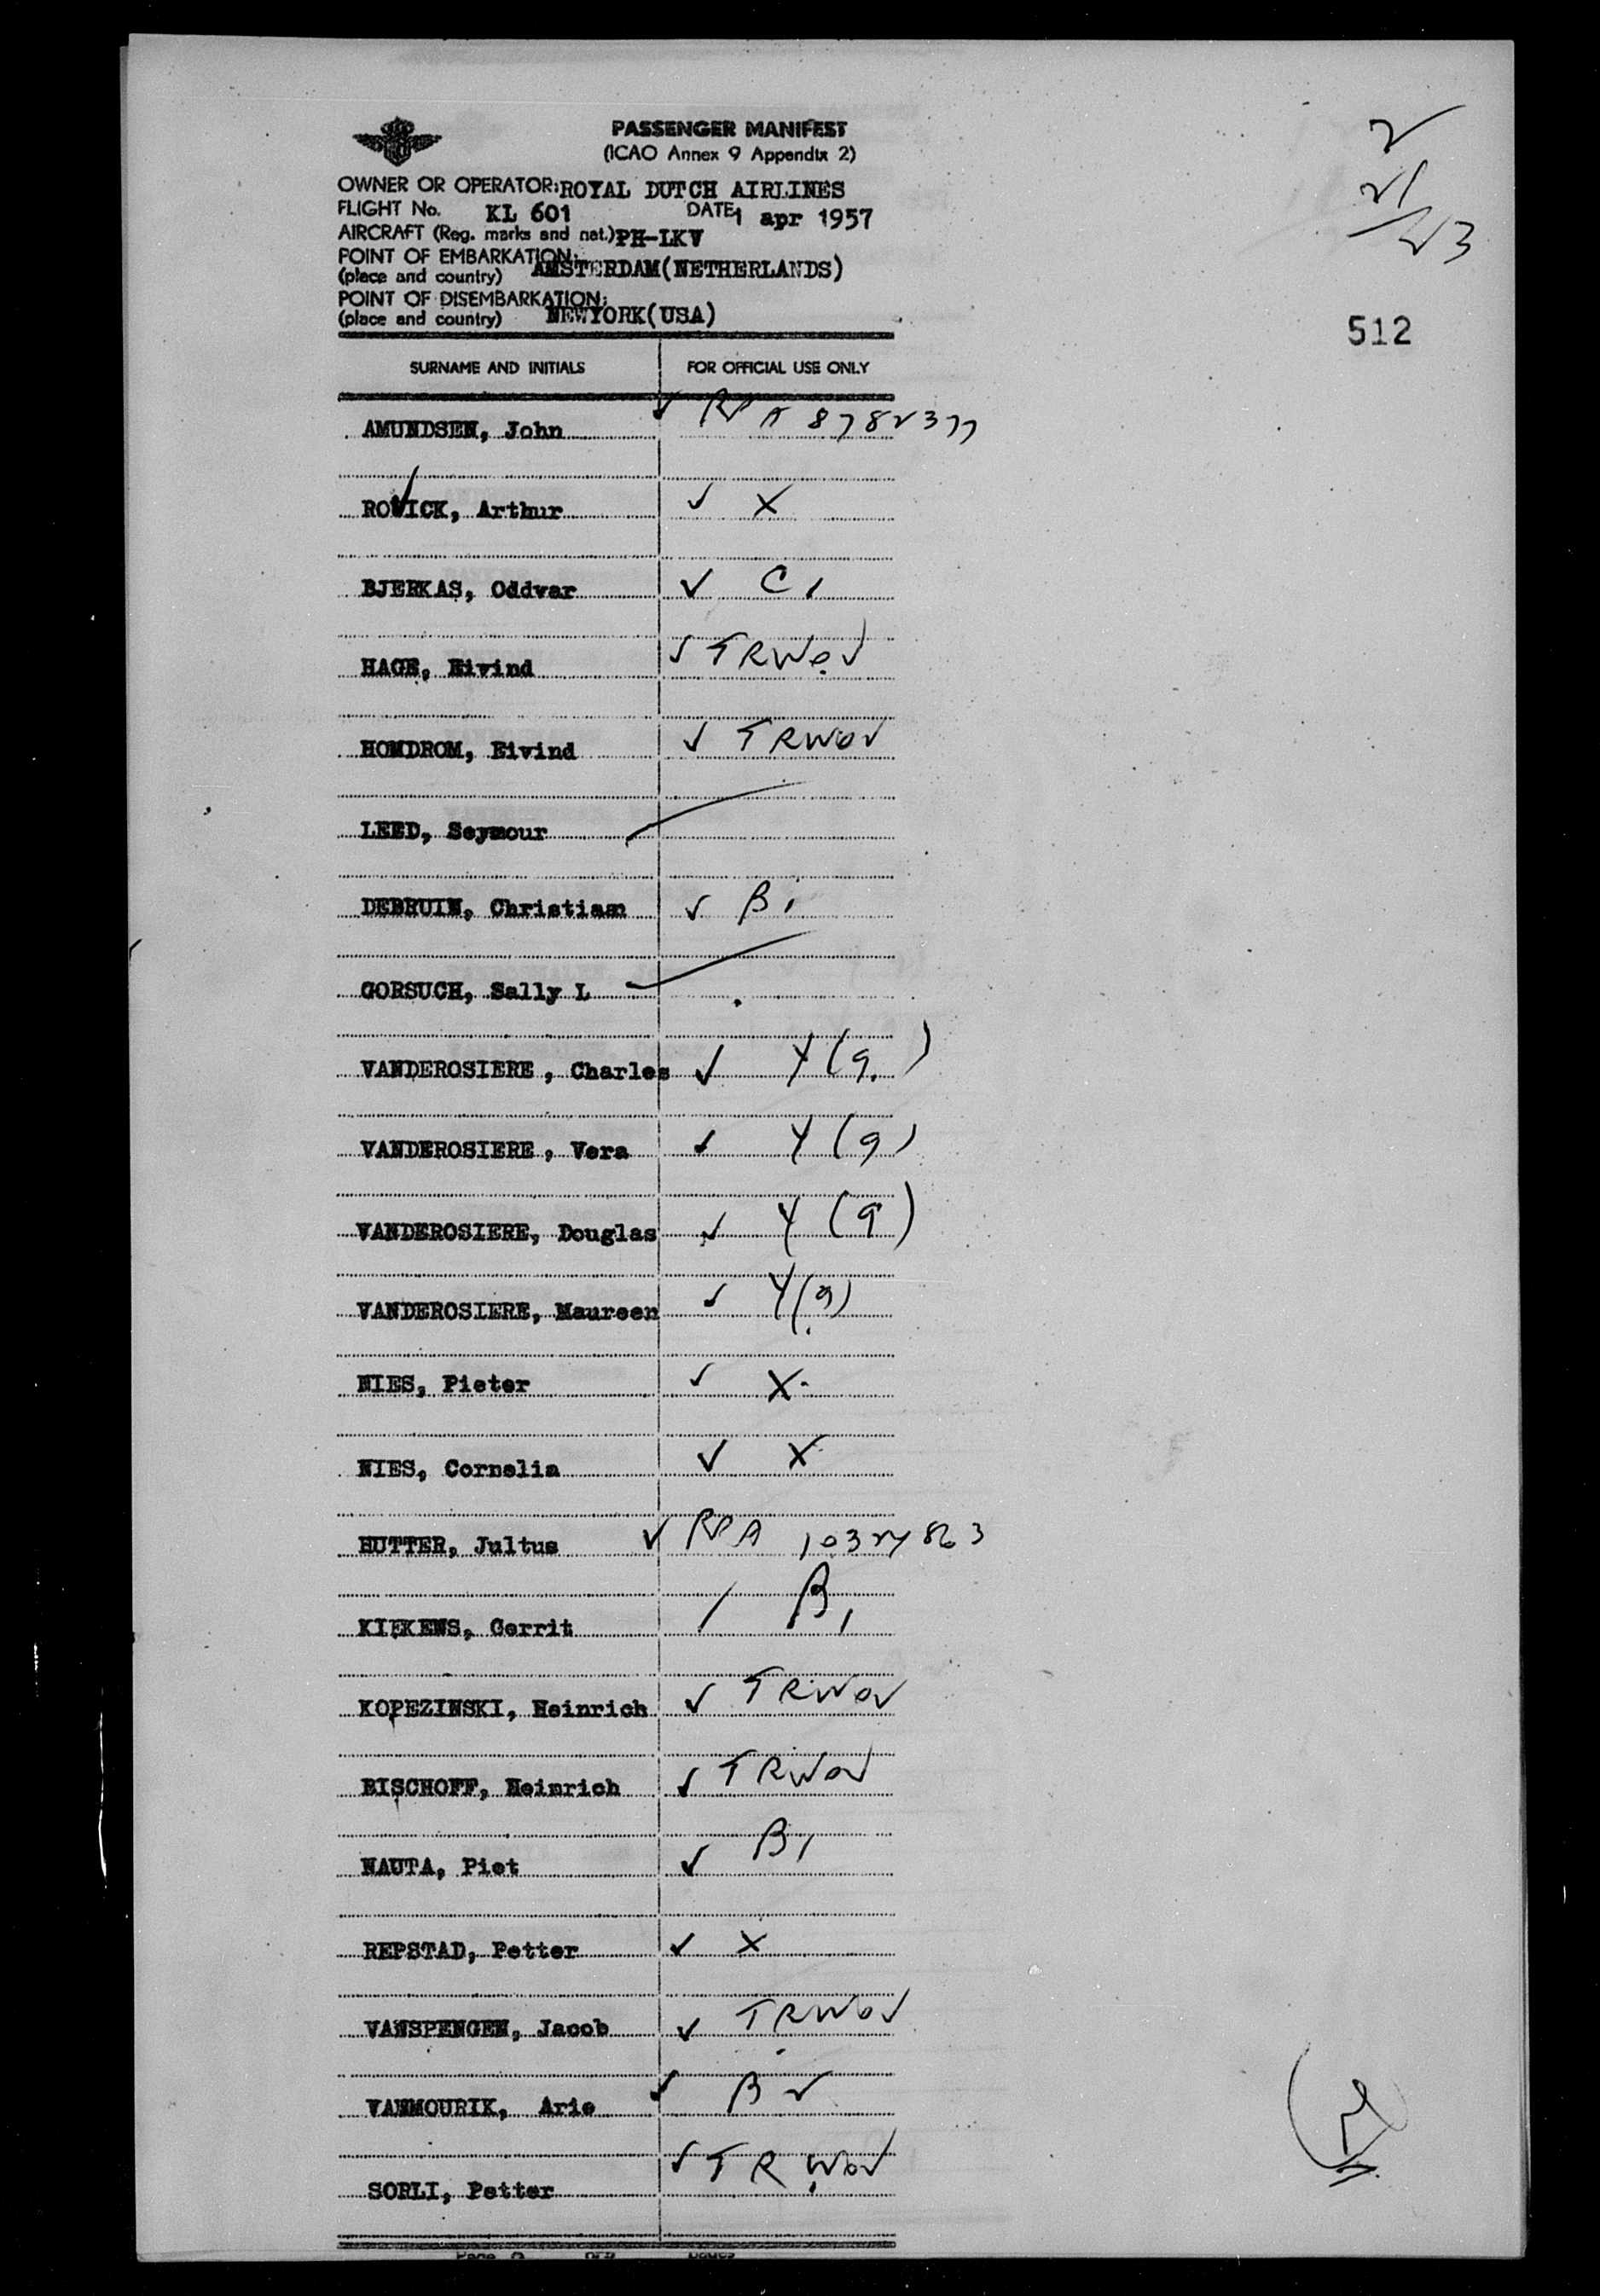 PASSENGER MANIFEST
(ICAO Annex 9 Appendix 2)
OWNER OR OPERATOR: ROYAL DUTCH AIRLINES
FLIGHT No. KL 601 DATE 1 apr 1957
AIRCRAFT (Reg. marks and nat.) PH-LKV
POINT OF EMBARKATION:
(place and country) AMSTERDAM(NETHERLANDS)
POINT OF DISEMBARKATION:
(place and country) NEWYORK(USA)
512
SURNAME AND INITIALS FOR OFFICIAL USE ONLY
AMUNDSEN, John ✓ RPA 8782377
ROVICK, Arthur ✓ X
BJERKAS, Oddvar ✓ C1
HAGE, Eivind ✓ TRWOV
HOMDROM, Eivind ✓ TRWOV
LEED, Seymour
DEBRUIN, Christiam ✓ B1
GORSUCH, Sally L
VANDEROSIERE, Charles ✓ Y(9)
VANDEROSIERE, Vera ✓ Y(9)
VANDEROSIERE, Douglas ✓ Y(9)
VANDEROSIERE, Maureen ✓ Y(9)
NIES, Pieter ✓ X
NIES, Cornelia ✓ X
HUTTER, Jultus ✓ RPA
KIEKENS, Gerrit / B1
KOPEZINSKI, Heinrich ✓ TRWOV
BISCHOFF, Heinrich ✓ TRWOV
NAUTA, Piet ✓ B1
REPSTAD, Petter ✓ X
VANSPENGEN, Jacob ✓ TRWOV
VANMOURIK, Arie ✓ B2
SORLI, Petter ✓ TRWOV